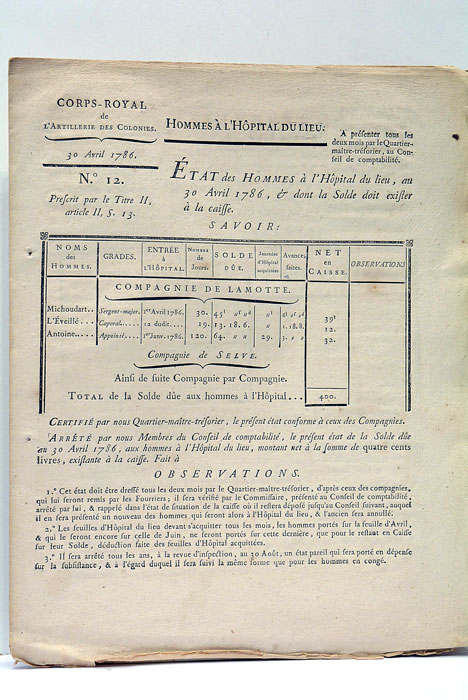 CORPS-ROYAL
de
L'ARTILLERIE DES COLONIES.
30 Avril 1786.
N.º 12.
Prescrit par le Titre II,
article II, S. 13.
HOMMES À L'HÔPITAL DU LIEU.
A présenter tous les
deux mois par le Quartier-
maître-trésorier, au Con-
seil de comptabilité.
ÉTAT des HOMMES à l'Hôpital du lieu, au
30 Avril 1786, & dont la Solde doit exister
à la caisse.
SAVOIR:
NOMS des HOMMES. GRADES. ENTRÉE à L'HÔPITAL. NOMBRE de Jours. SOLDE DÛE. Journées d'Hôpital acquittées Avances faites. NET en CAISSE. OBSERVATIONS
COMPAGNIE DE LAMOTTE.
Michoudart.. Sergent-major. 1.er Avril 1786. 30. 45 39
L'Éveillé.... Caporal..... 12 dudit.... 19. 13. 18. 6. 1. 18. 8. 12.
Antoine..... Appointé... 1.er Janv. 1786. 120. 64. 29. 3. 32.
Compagnie de SELVE.
Ainsi de suite Compagnie par Compagnie.
TOTAL de la Solde dûe aux hommes à l'Hôpital... 400.
CERTIFIÉ par nous Quartier-maître-trésorier, le présent état conforme à ceux des Compagnies.
ARRÊTÉ par nous Membres du Conseil de comptabilité, le présent état de la Solde dûe
au 30 Avril 1786, aux hommes à l'Hôpital du lieu, montant net à la somme de quatre cents
livres, existante à la caisse. Fait à
OBSERVATIONS.
1.º Cet état doit être dressé tous les deux mois par le Quartier-maître-trésorier, d'après ceux des compagnies,
qui lui seront remis par les Fourriers; il sera vérifié par le Commissaire, présenté au Conseil de comptabilité,
arrêté par lui, & rappelé dans l'état de situation de la caisse où il restera déposé jusqu'au Conseil suivant, auquel
il en sera présenté un nouveau des hommes qui seront alors à l'Hôpital du lieu, & l'ancien sera annullé.
2.º Les feuilles d'Hôpital du lieu devant s'acquitter tous les mois, les hommes portés sur la feuille d'Avril,
& qui le feront encore sur celle de Juin, ne seront portés sur cette dernière, que pour le restant en Caisse
sur leur Solde, déduction faite des feuilles d'Hôpital acquittées.
3.º Il sera arrêté tous les ans, à la revue d'inspection, au 30 Août, un état pareil qui sera porté en dépense
sur la subsistance, & à l'égard duquel il sera suivi la même forme que pour les hommes en congé.